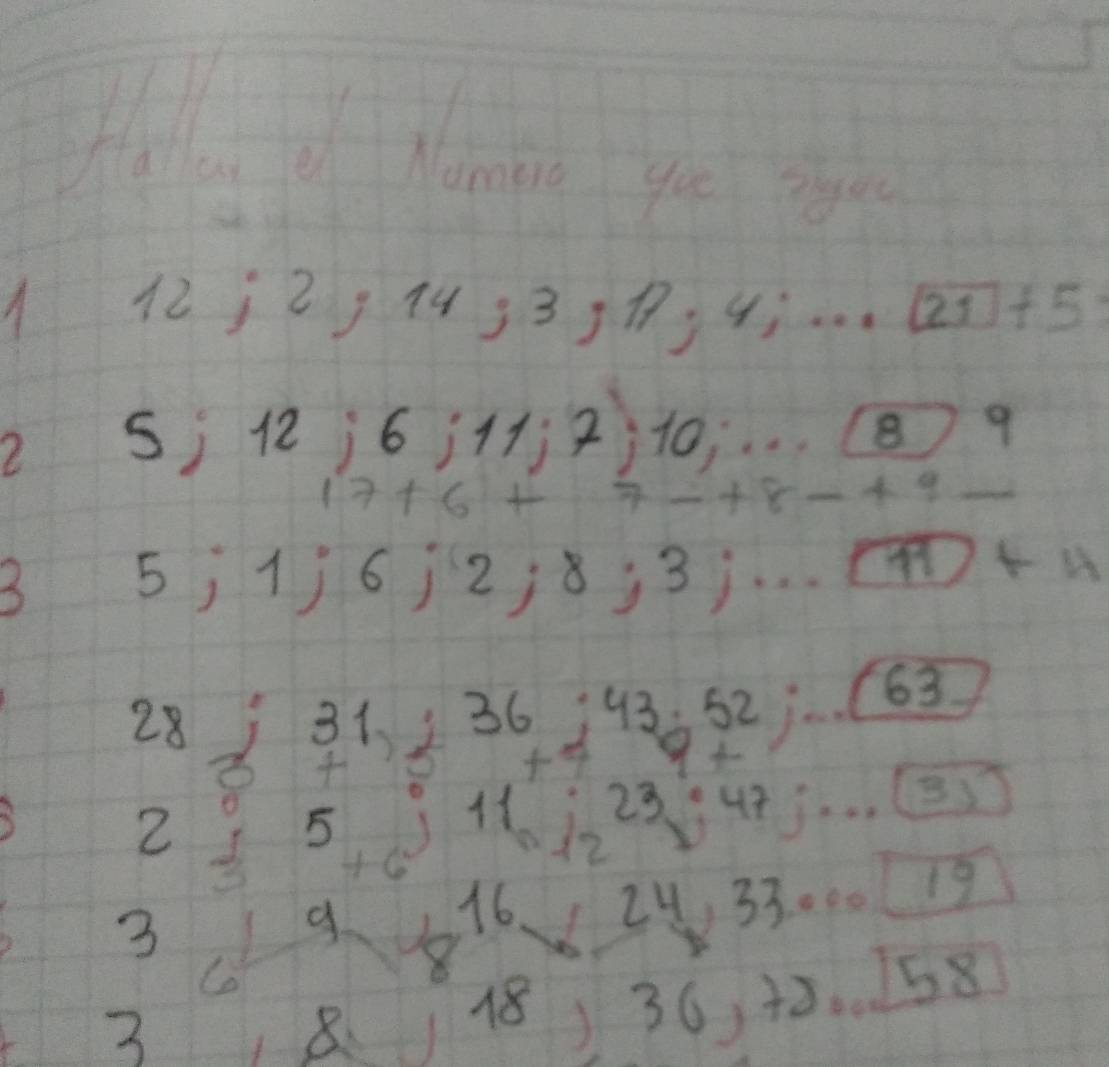 Hallar el Numero que sigue
1 12 ; 2 ; 14 ; 3 ; 17 ; 4 ; ... 21 + 5
2 5 ; 12 ; 6 ; 11 ; 7 ; 10 ; ... 8 9
17 + 6 + 7 - + 8 - + 9 —
3 5 ; 1 ; 6 ; 2 ; 8 ; 3 ; ... 11 +
28 ; 31 ; 36 ; 43 ; 52 ; ... 63
+ +7 9 +
2 ; 5 ; 11 ; 23 ; 47 ; ...
3 +6 12
3 ; 9 ; 16 ; 24 ; 33 ... 19
6 8
3 ; 8 ; 18 ; 36 ; ... 58